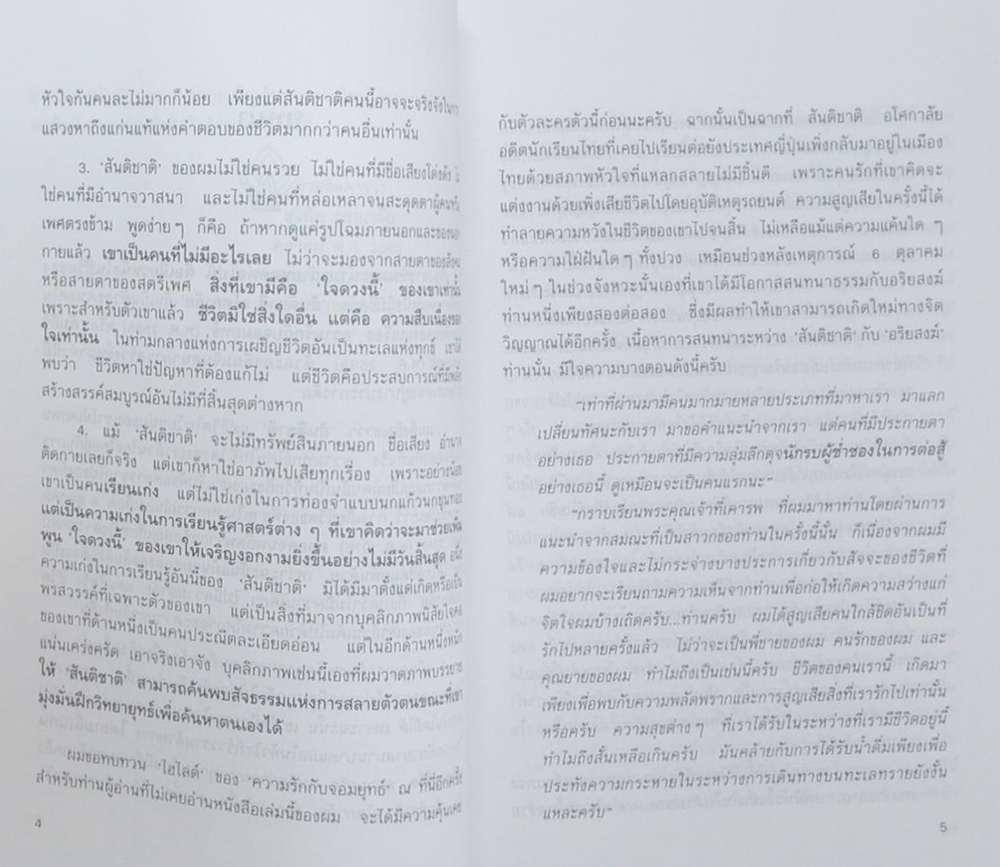 หัวใจกันคนละไม่มากก็น้อย เพียงแต่สันติชาติคนนี้อาจจะจริงจังในการ
แสวงหาถึงแก่นแท้แห่งคำตอบของชีวิตมากกว่าคนอื่นเท่านั้น
3. 'สันติชาติ' ของผมไม่ใช่คนรวย ไม่ใช่คนที่มีชื่อเสียงโด่งดัง
ใช่คนที่มีอำนาจวาสนา และไม่ใช่คนที่หล่อเหลาจนสะดุดตาผู้คน
เพศตรงข้าม พูดง่ายๆ ก็คือ ถ้าหากดูแค่รูปโฉมภายนอกและของนอก
กายแล้ว เขาเป็นคนที่ไม่มีอะไรเลย ไม่ว่าจะมองจากสายตาของสังคม
หรือสายตาของสตรีเพศ สิ่งที่เขามีคือ 'ใจดวงนี้' ของเขาเท่านั้น
เพราะสำหรับตัวเขาแล้ว ชีวิตมิใช่สิ่งใดอื่น แต่คือ ความสืบเนื่องของ
ใจเท่านั้น ในท่ามกลางแห่งการเผชิญชีวิตอันเป็นทะเลแห่งทุกข์ เขาได้
พบว่า ชีวิตหาใช่ปัญหาที่ต้องแก้ไม่ แต่ชีวิตคือประสบการณ์ที่มีพลัง
สร้างสรรค์สมบูรณ์อันไม่มีที่สิ้นสุดต่างหาก
4. แม้ 'สันติชาติ' จะไม่มีทรัพย์สินภายนอก ชื่อเสียง อำนาจ
ติดกายเลยก็จริง แต่เขาก็หาใช่อาภัพไปเสียทุกเรื่อง เพราะอย่างน้อย
เขาเป็นคนเรียนเก่ง แต่ไม่ใช่เก่งในการท่องจำแบบนกแก้วนกขุนทอง
แต่เป็นความเก่งในการเรียนรู้ศาสตร์ต่าง ๆ ที่เขาคิดว่าจะมาช่วยเพิ่ม
พูน 'ใจดวงนี้' ของเขาให้เจริญงอกงามยิ่งขึ้นอย่างไม่มีวันสิ้นสุด อนึ่ง
ความเก่งในการเรียนรู้อันนี้ของ 'สันติชาติ' มิได้มีมาตั้งแต่เกิดหรือเป็น
พรสวรรค์ที่เฉพาะตัวของเขา แต่เป็นสิ่งที่มาจากบุคลิกภาพนิสัยใจคอ
ของเขาที่ด้านหนึ่งเป็นคนประณีตละเอียดอ่อน แต่ในอีกด้านหนึ่งหนัก
แน่นเคร่งครัด เอาจริงเอาจัง บุคลิกภาพเช่นนี้เองที่ผมวาดภาพบรรยาย
ให้ 'สันติชาติ' สามารถค้นพบสัจธรรมแห่งการสลายตัวตนขณะที่เขา
มุ่งมั่นฝึกวิทยายุทธ์เพื่อค้นหาตนเองได้
ผมขอทบทวน 'ไฮไลต์' ของ 'ความรักกับจอมยุทธ์' ณ ที่นี้อีกครั้ง
สำหรับท่านผู้อ่านที่ไม่เคยอ่านหนังสือเล่มนี้ของผม จะได้มีความคุ้นเคย
4
กับตัวละครตัวนี้ก่อนนะครับ ฉากนั้นเป็นฉากที่ สันติชาติ อโศกาลัย
อดีตนักเรียนไทยที่เคยไปเรียนต่อยังประเทศญี่ปุ่นเพิ่งกลับมาอยู่ในเมือง
ไทยด้วยสภาพหัวใจที่แหลกสลายไม่มีชิ้นดี เพราะคนรักที่เขาคิดจะ
แต่งงานด้วยเพิ่งเสียชีวิตไปโดยอุบัติเหตุรถยนต์ ความสูญเสียในครั้งนี้ได้
ทำลายความหวังในชีวิตของเขาไปจนสิ้น ไม่เหลือแม้แต่ความแค้นใด ๆ
หรือความใฝ่ฝันใด ๆ ทั้งปวง เหมือนช่วงหลังเหตุการณ์ 6 ตุลาคม
ใหม่ๆ ในช่วงจังหวะนั้นเองที่เขาได้มีโอกาสสนทนาธรรมกับอริยสงฆ์
ท่านหนึ่งเพียงสองต่อสอง ซึ่งมีผลทำให้เขาสามารถเกิดใหม่ทางจิต
วิญญาณได้อีกครั้ง เนื้อหาการสนทนาระหว่าง 'สันติชาติ' กับ 'อริยสงฆ์'
ท่านนั้น มีใจความบางตอนดังนี้ครับ
"เท่าที่ผ่านมามีคนมากมายหลายประเภทที่มาหาเรา มาแลก
เปลี่ยนทัศนะกับเรา มาขอคำแนะนำจากเรา แต่คนที่มีประกายตา
อย่างเธอ ประกายตาที่มีความลุ่มลึกดุจนักรบผู้ช่ำชองในการต่อสู้
อย่างเธอนี้ ดูเหมือนจะเป็นคนแรกนะ"
"กราบเรียนพระคุณเจ้าที่เคารพ ที่ผมมาหาท่านโดยผ่านการ
แนะนำจากสมณะที่เป็นสาวกของท่านในครั้งนี้นั้น ก็เนื่องจากผมมี
ความข้องใจและไม่กระจ่างบางประการเกี่ยวกับสัจจะของชีวิตที่
ผมอยากจะเรียนถามความเห็นจากท่านเพื่อก่อให้เกิดความสว่างแก่
จิตใจผมบ้างเถิดครับ...ท่านครับ ผมได้สูญเสียคนใกล้ชิดอันเป็นที่
รักไปหลายครั้งแล้ว ไม่ว่าจะเป็นพี่ชายของผม คนรักของผม และ
คุณยายของผม ทำไมถึงเป็นเช่นนี้ครับ ชีวิตของคนเรานี้ เกิดมา
เพียงเพื่อพบกับความพลัดพรากและการสูญเสียสิ่งที่เรารักไปเท่านั้น
หรือครับ ความสุขต่างๆ ที่เราได้รับในระหว่างที่เรามีชีวิตอยู่นี้
ทำไมถึงสั้นเหลือเกินครับ มันคล้ายกับการได้รับน้ำดื่มเพียงเพื่อ
ประทังความกระหายในระหว่างการเดินทางบนทะเลทรายยังงั้น
แหละครับ"
5